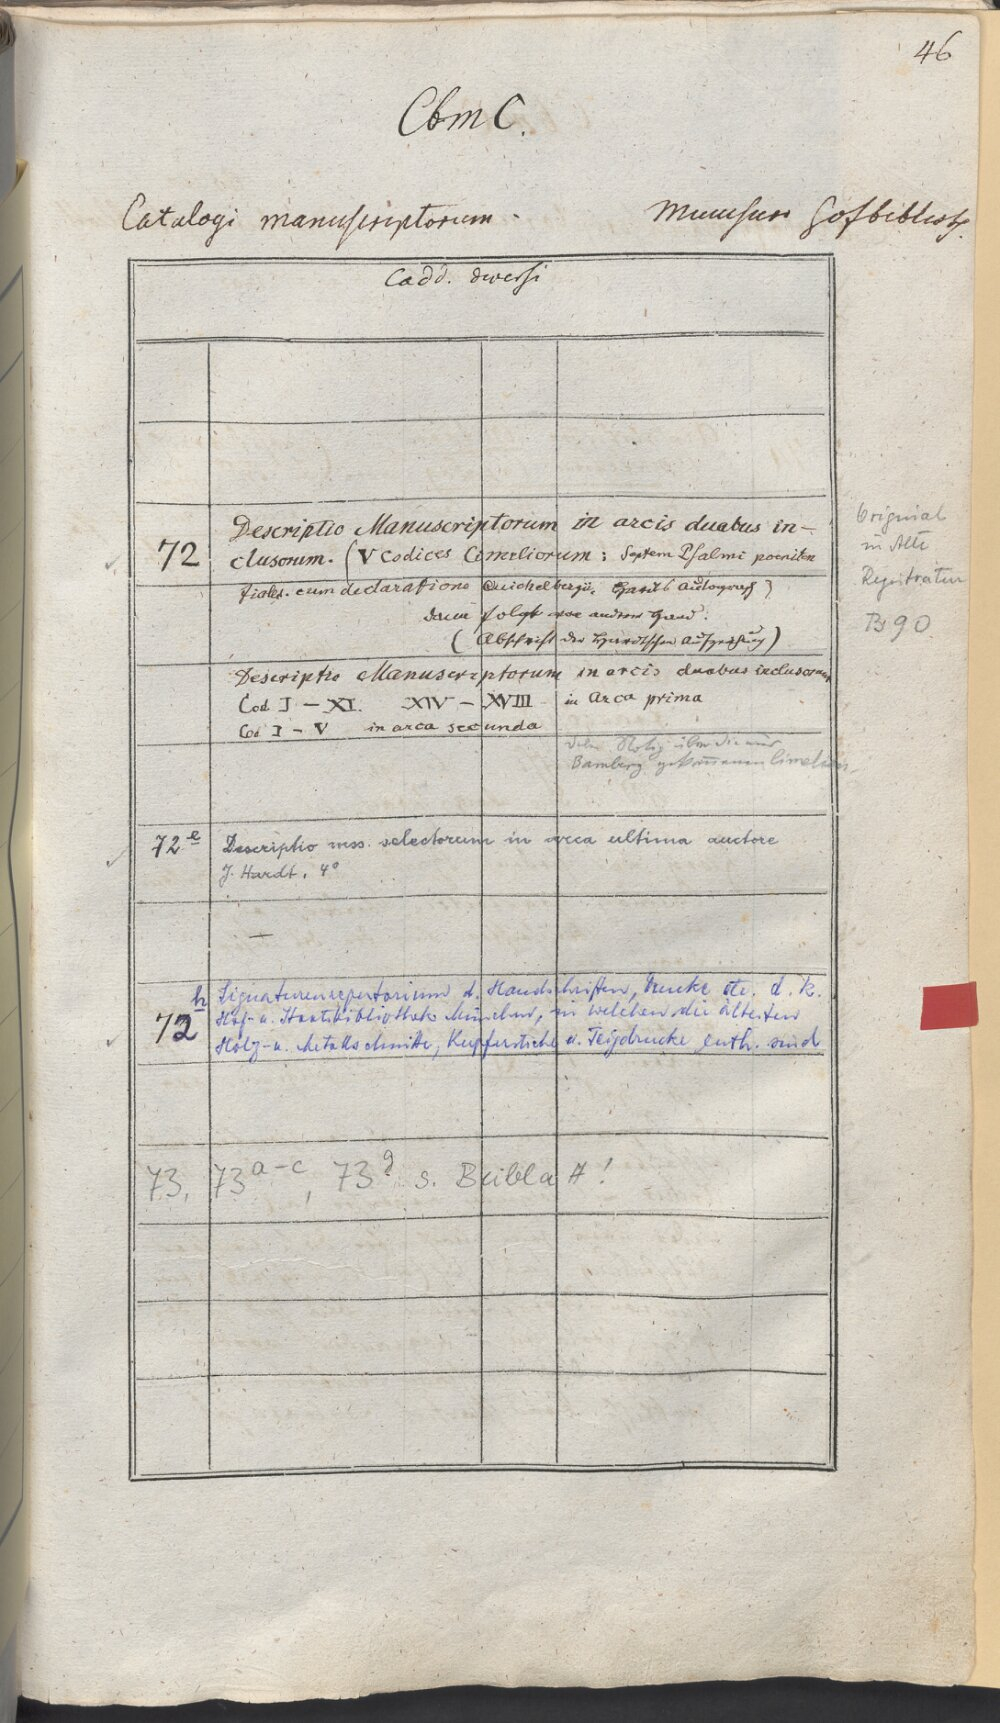 46
Cbm C.
Catalogi manuscriptorum. Hofbiblioth.
Codd. diversi
72 Descriptio Manuscriptorum in arcis duabus in-
clusorum. (V Codices Cimeliorum: Septem Psalmi poeniten
tiales. cum declaratione Quichelbergii. Hardts autograph)
dann folgt von andrer Hand.
(Abschrift der Hardtschen Aufzeichnung)
Descriptio Manuscriptorum in arcis duabus inclusorum
Cod I – XI. XIV – XVIII in Arca prima
Cod I – V in arca secunda
Notiz über die aus
Bamberg gekommenen Cimelien
Original
in Alte
Registratur
B 90
72 e Descriptio mss. selectorum in arca ultima auctore
J. Hardt. 4°
72 h Signaturenrepertorium d. Handschriften, Drucke etc. d. K.
Hof- u. Staatsbibliothek München, in welchen die ältesten
Holz- u. Metallschnitte, Kupferstiche u. Teigdrucke enth. sind
73, 73 a-c, 73 d s. Beibla A!